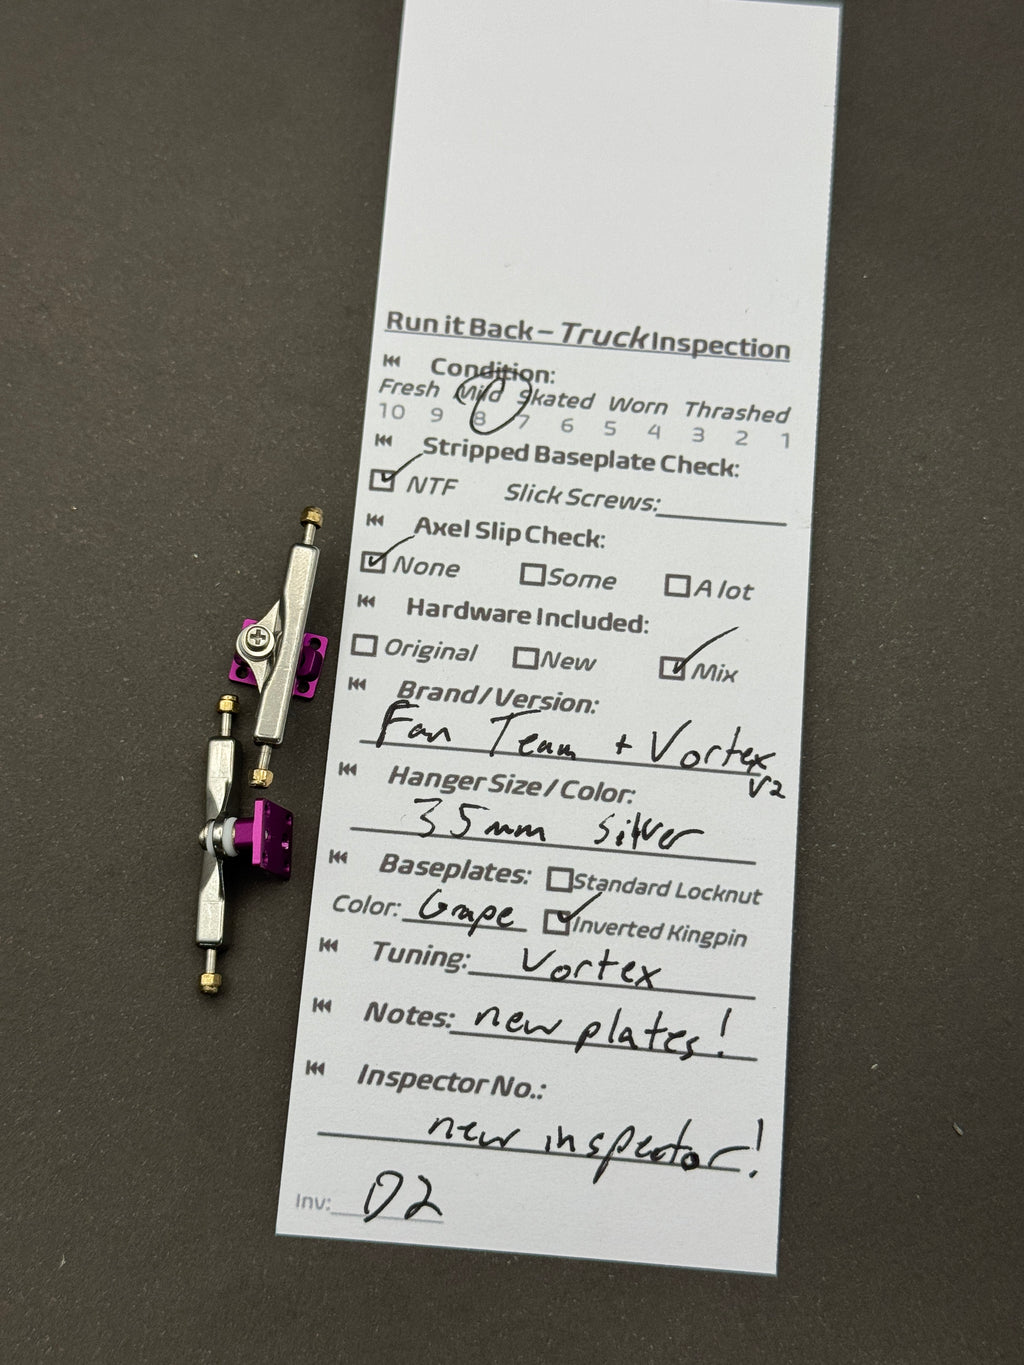 Run it Back – Truck Inspection
Condition:
Fresh Mild Skated Worn Thrashed
10 9 8 7 6 5 4 3 2 1
Stripped Baseplate Check:
NTF Slick Screws:
Axel Slip Check:
None Some A lot
Hardware Included:
Original New Mix
Brand/Version:
Fan Team + Vortex
V2
Hanger Size/Color:
35mm Silver
Baseplates: Standard Locknut
Color: Grape Inverted Kingpin
Tuning: Vortex
Notes: new plates!
Inspector No.:
new inspector!
Inv: D2